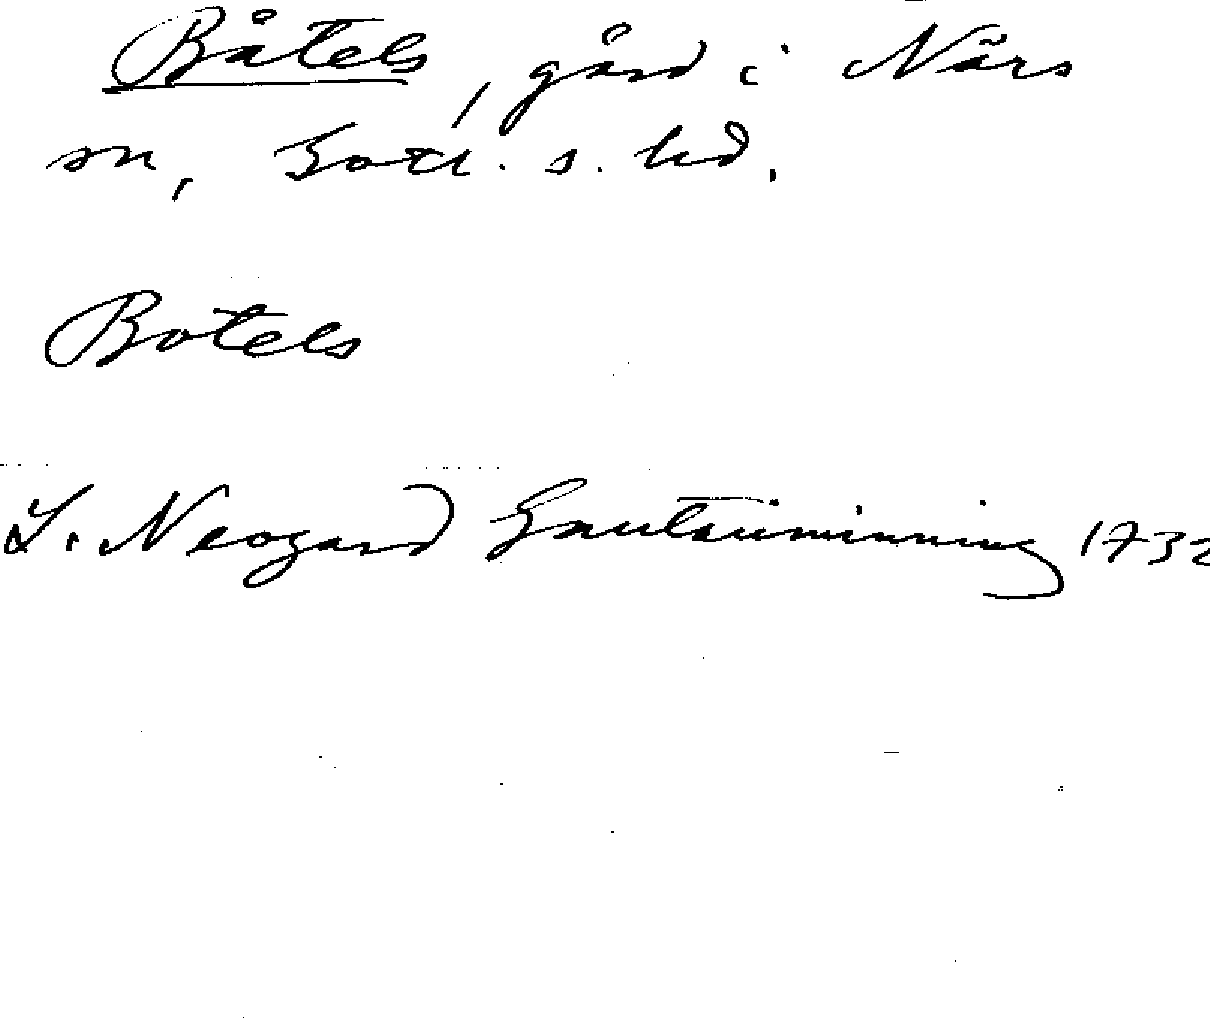 Båtels, gård i Närs
sn, Gotl. s. hd.
Botels
L. Neogard Gautauminning 1732